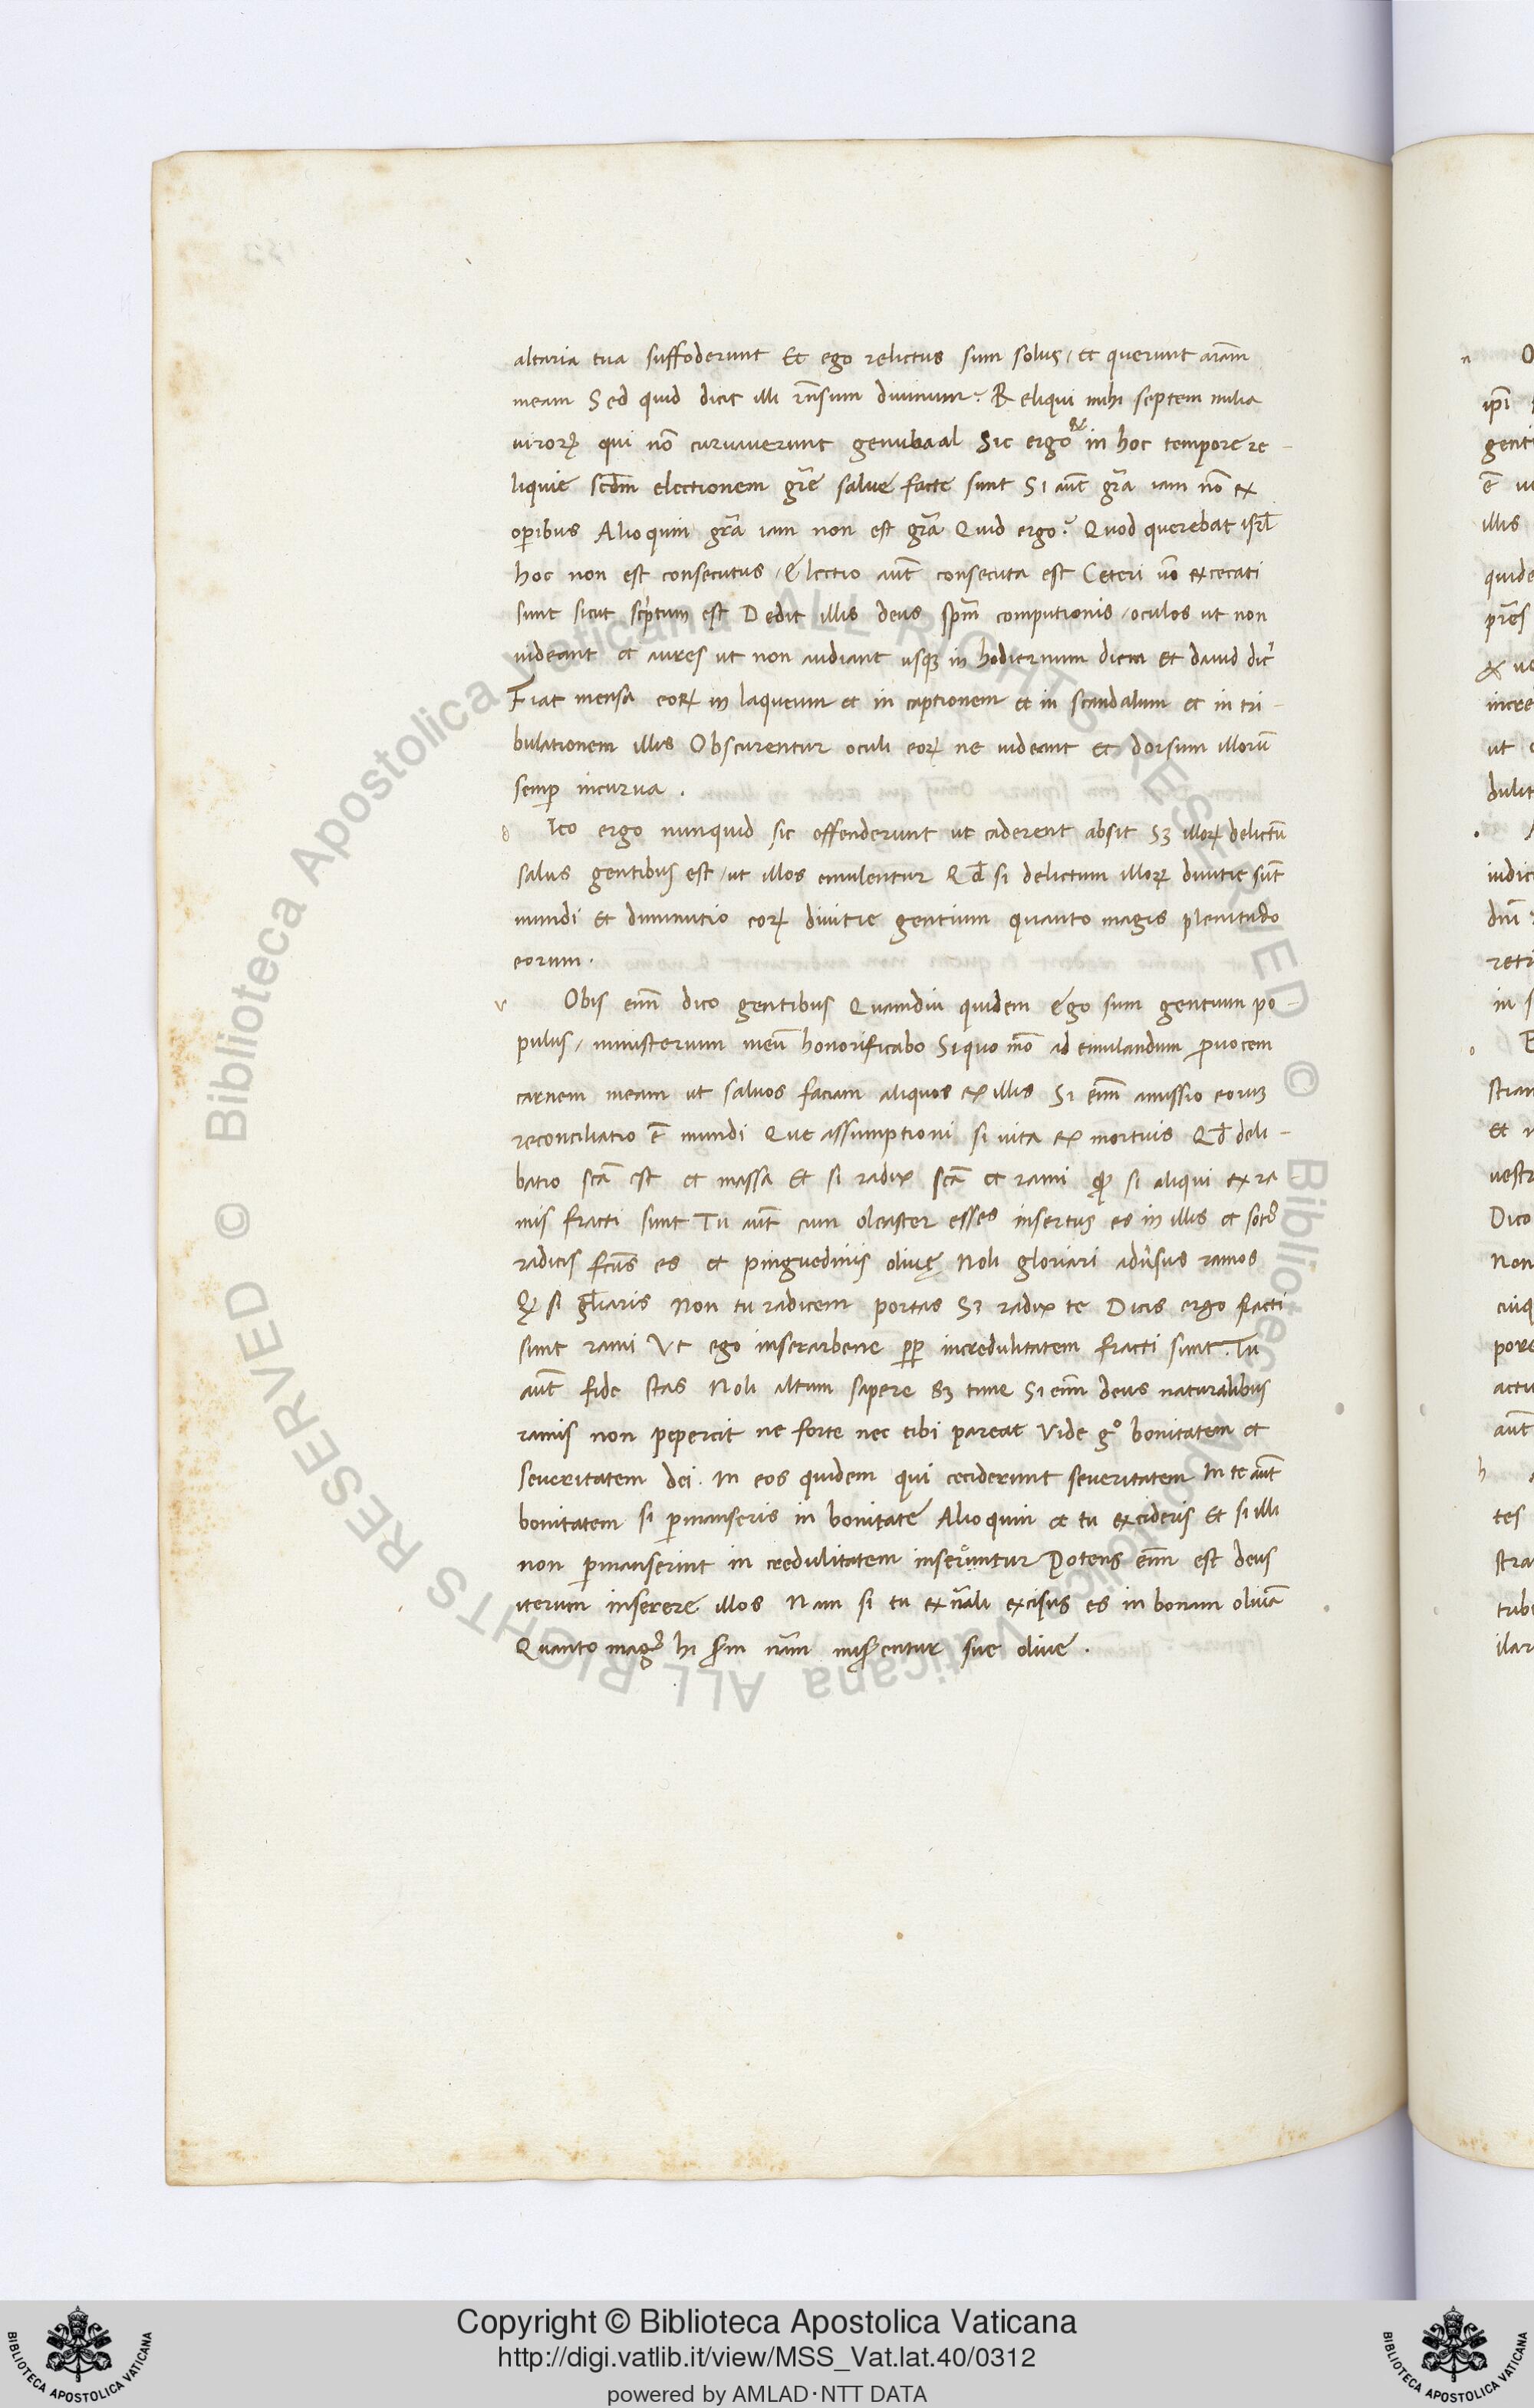 altaria tua suffoderunt Et ego relictus sum solus / et querunt aīam
meam Sed quid dicit illi rn̄sum diuinum? Reliqui mihi septem milia
virorꝝ qui nō curvaverunt genu baal Sic ergo et in hoc tempore re-
liquie scdm̄ electionem grē salue facte sunt Si aūt grā iam nō ex
oꝑibus Alioquin grā iam non est grā Quid ergo? Quod querebat isrl̄
hoc non est consecutus / Electio aūt consecuta est Ceteri vō excecati
sunt sicut scptum est Dedit illis deus spm̄ computionis / oculos ut non
uideant et aures ut non audiant usqꝫ in hodiernum diem Et dauid dic̄
Fiat mensa eorꝝ in laqueum et in captionem et in scandalum et in tri-
bulationem illis Obscurentur oculi eorꝝ ne uideant Et dorsum illorū
semꝑ incurua .
d Ico ergo nunquid sic offenderunt ut caderent absit Sꝫ illorꝝ delictū
salus gentibus est / ut illos emulentur Qd̄ si delictum illorꝝ diuitie sūt
mundi Et diminutio eorꝝ diuitie gentium quanto magis plenitudo
eorum .
v Obis enī dico gentibus Quamdiu quidem ego sum gentium po-
pulus / ministerium meū honorificabo Si quo mō ad emulandum ꝓuocem
carnem meam ut saluos faciam aliquos ex illis Si enī amissio eorum
reconciliatio ē mundi Que assumptioni si uita ex mortuis Qd̄ deli-
batio scā est et massa Et si radix scā et rami Qꝫ si aliqui ex ra
mis fracti sunt Tu aūt cum oleaster esses insertus es in illis et soti9
radicis fcūs es et pinguedinis oliuę Noli gloriari adūsus ramos
Qꝫ si gl̄iaris Non tu radicem portas Sꝫ radix te Dicis ergo fracti
sunt rami Ut ego inserar bene ꝓp incredulitatem fracti sunt . Tu
aūt fide stas Noli altum sapere Sꝫ time Si enī deus naturalibus
ramis non pepercit ne forte nec tibi pareat Vide gº bonitatem et
seueritatem dei . In eos quidem qui ceciderunt seueritatem In te aūt
bonitatem si ꝑmanseris in bonitate Alioquin et tu excideris Et si illi
non ꝑmanserint in credulitatem inserūntur Potens enī est deus
iterum inserere illos Nam si tu ex nāli excisus es in bonam oliuā
Quanto mag9 hi sm̄ nām inserentur sue oliue .
Copyright © Biblioteca Apostolica Vaticana
http://digi.vatlib.it/view/MSS_Vat.lat.40/0312
powered by AMLAD·NTT DATA
BIBLIOTECA APOSTOLICA VATICANA
BIBLIOTECA APOSTOLICA VATICANA
© Biblioteca Apostolica Vaticana ALL RIGHTS RESERVED © Biblioteca Apostolica Vaticana ALL RIGHTS RESERVED